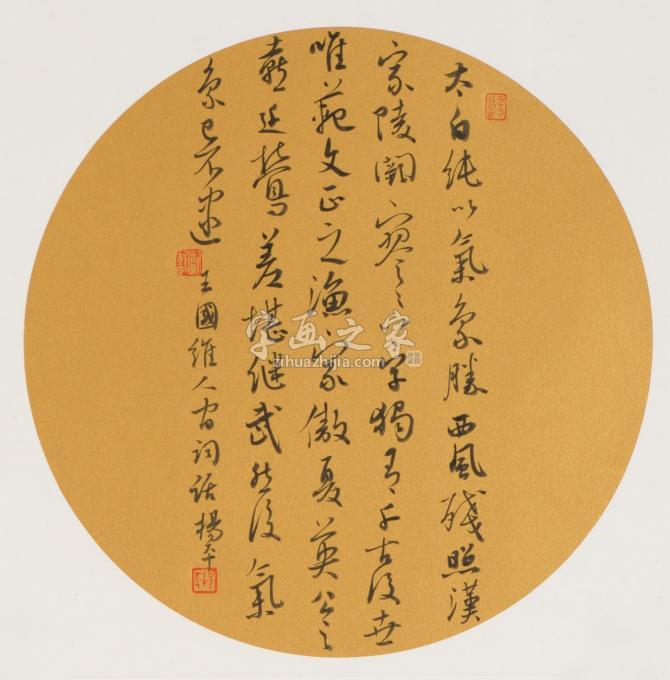 太白純以氣象勝西風殘照漢
家陵闕寥々八字獨有千古後世
唯範文正之漁家傲夏英公之
喜遷鶯差堪继武然後氣
象已不逮
王國維人間詞話楊平
字画之家
zihuazhijia.com